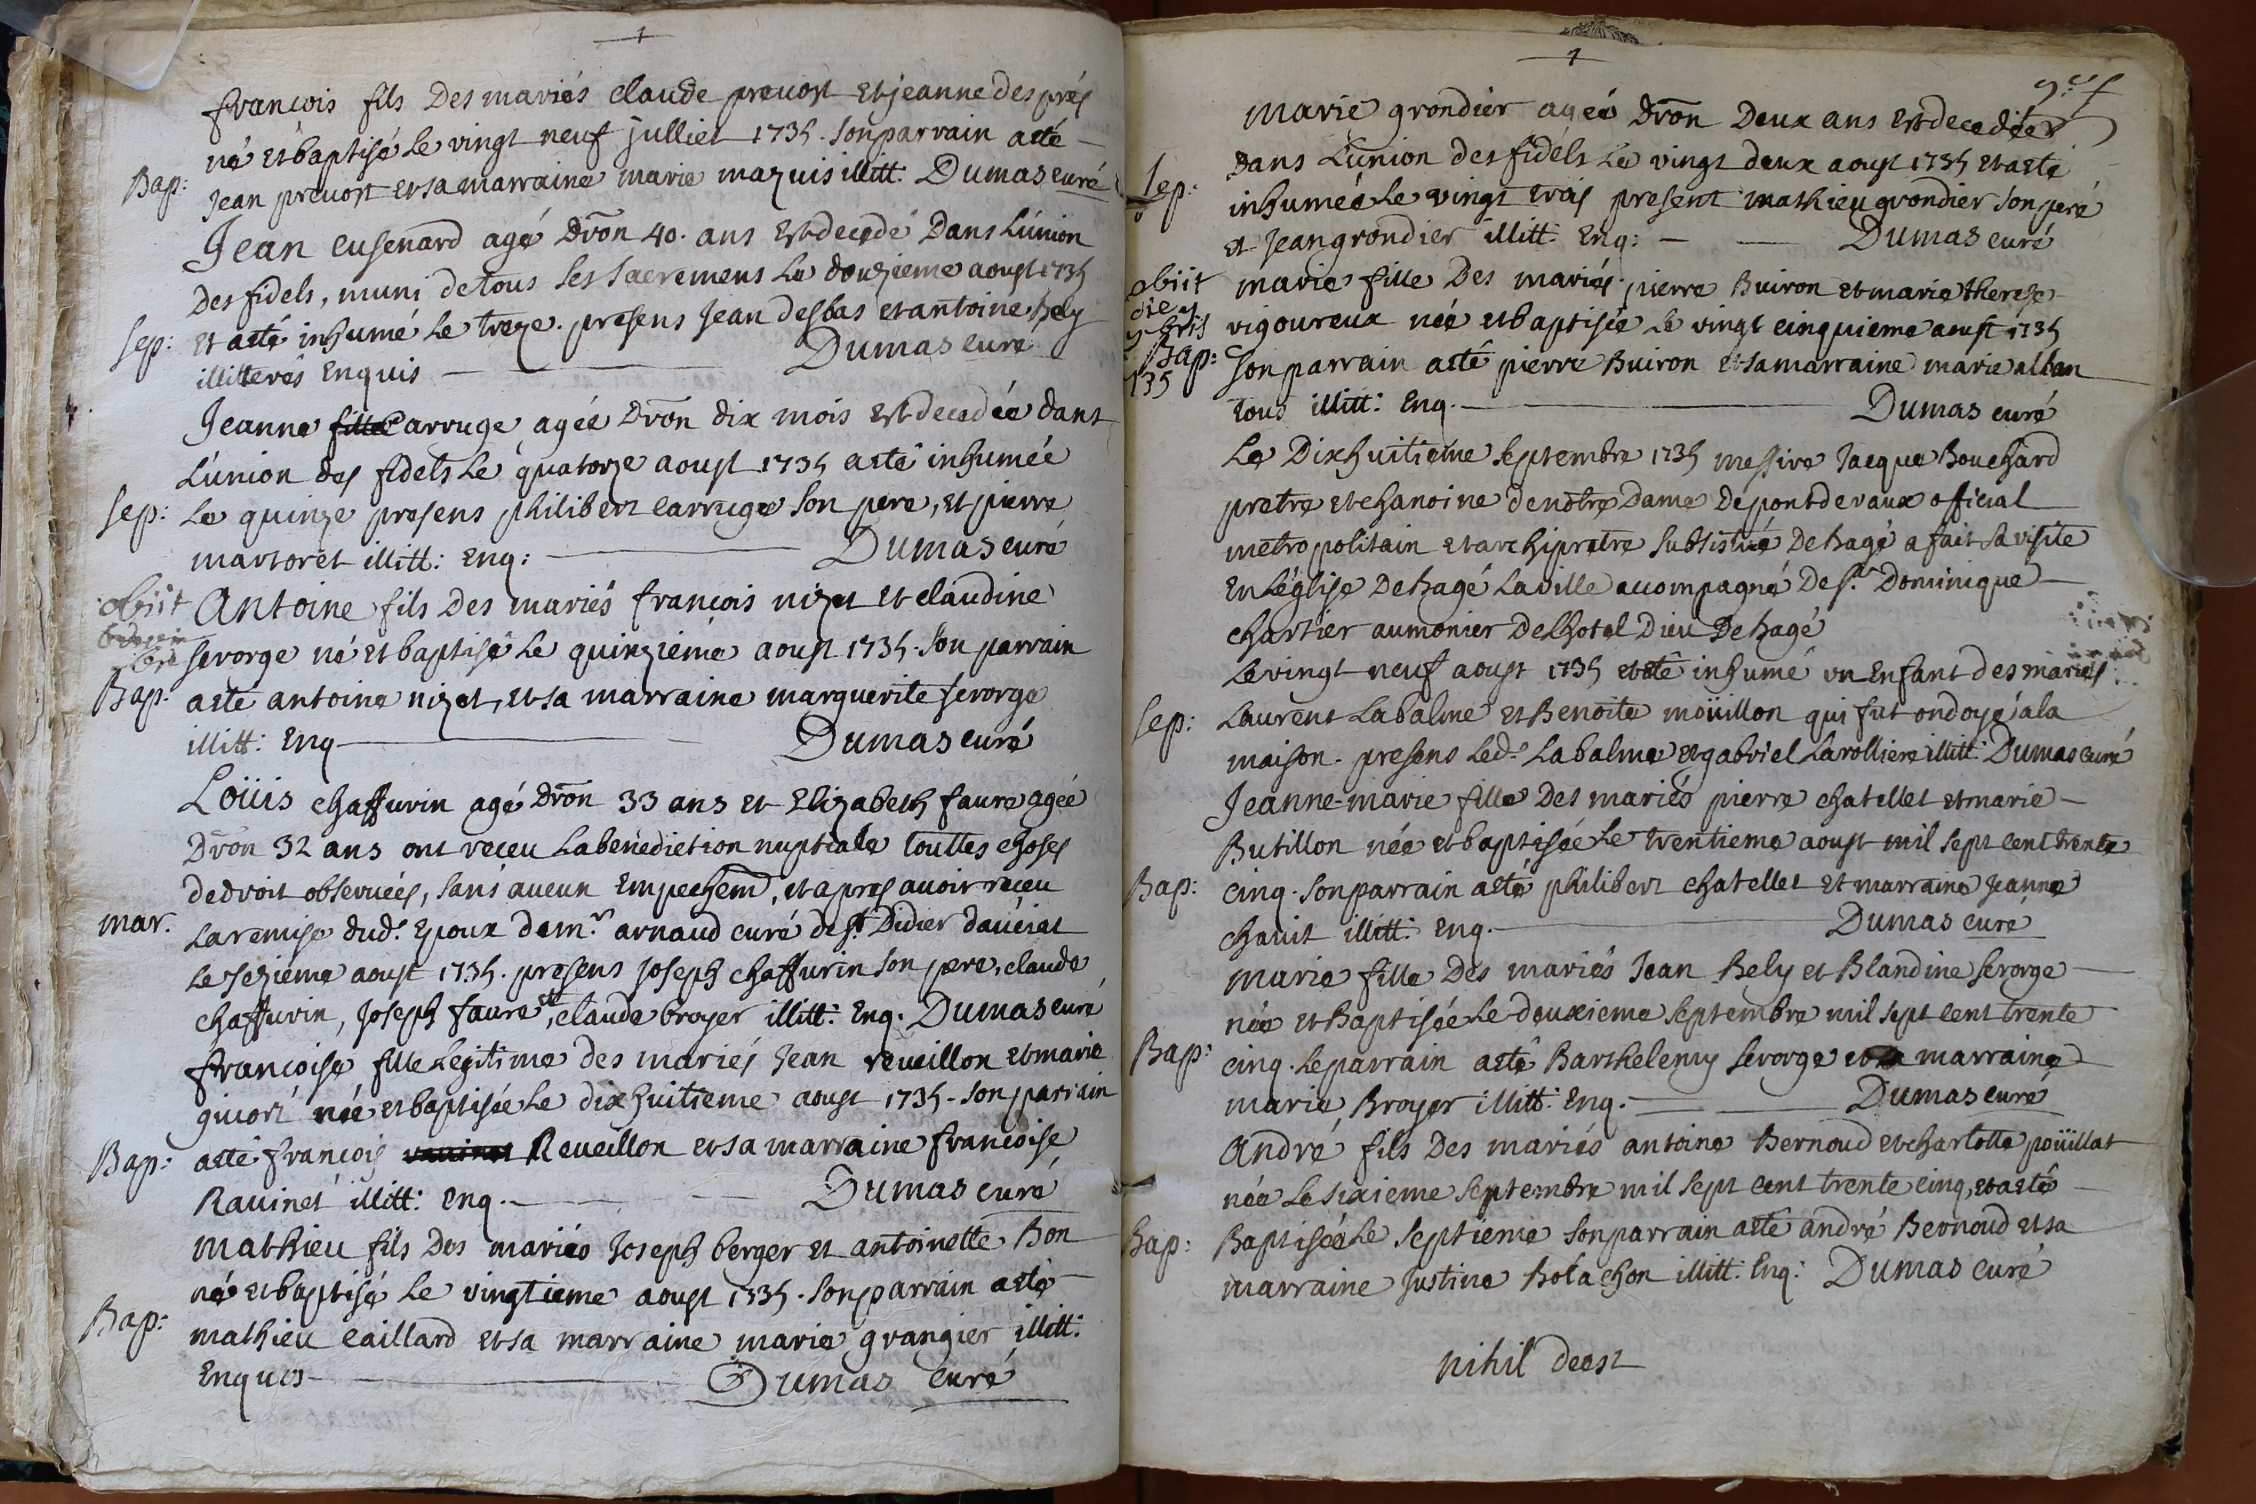 françois fils Des mariés claude prevost et jeanne des prés
né et baptisé le vingt neuf julliet 1735. son parrain aeté
Bap: jean prevost et sa marraine marie mazuis illitt. Dumas curé
Jean eusenard agé Dron 40. ans est decedé Dans L'union
Des fidels, muni de tous ses sacremens Le douzieme aoust 1735
sep: et aeté inhumé Le treze. presens Jean desbas et antoine bely
illitterés Enquis Dumas curé
Jeanne carruge agée Dron dix mois est decedée dans
L'union des fidels Le quatorze aoust 1735 aeté inhumée
sep: Le quinze presens philibert carruge son pere, et pierre
martoret illitt: Enq: Dumas curé
obiit Antoine fils Des mariés françois nizet et claudine
serorge né et baptisé Le quinzieme aoust 1735. son parrain
Bap: aeté antoine nizet, et sa marraine marguerite serorge
illitt: Enq Dumas curé
Loüis chaffurin agé Dron 33 ans et Elizabeth faure agée
Dron 32 ans ont receu La benediction nuptiale touttes choses
de droit observées, sans aucun Empechem, et apres avoir receu
mar. La remise dud. Epoux de mr. arnaud curé de st. Didier davérat
Le sezieme aoust 1735. presens joseph chaffurin son pere, claude
chaffurin, joseph faure, et claude broyer illitt: Enq. Dumas curé
françoise fille Legitime des mariés Jean reveillon et marie
givort née et baptisée Le dixhuitieme aoust 1735. son parrain
Bap: aeté françois Reveillon et sa marraine françoise
Ravinet illitt: Enq. Dumas curé
mathieu fils Des mariés Joseph berger et antoinette Bon
né et baptisé Le vingtieme aoust 1735. son parrain aeté
Bap: mathieu caillard et sa marraine marie grangier illitt:
Enquis Dumas curé
marie grondier agée Dron Deux ans est decedée
sep: Dans L'union des fidels Le vingt deux aoust 1735 et aeté
inhumée Le vingt trois present mathieu grondier son peré
et Jean grondier illitt: Enq: Dumas curé
obiit marie fille Des mariés pierre Buiron et marie therese
die vigoureux née et baptisée Le vingt cinquieme aoust 1735
Bap: son parrain aeté pierre Buiron et sa marraine marie alban
tous illitt: Enq. Dumas curé
Le Dixhuitieme septembre 1735 messire Jacque Bouchard
pretre et chanoine de notre Dame De pontdevaux official
metropolitain et archipretre substitué De bagé a fait sa visite
En L'église De bagé La ville accompagné De sr. Dominique
chartier aumonier De Lhotel Dieu De bagé
Le vingt neuf aoust 1735 et eté inhumé un Enfant des mariés
sep: Laurent Labalme et Benoite moüillon qui fut ondoyé a la
maison. presens Led. Labalme et gabriel Larolliere illitt: Dumas curé
Jeanne-marie fille Des mariés pierre chatellet et marie
Butillon née et baptisée Le trentieme aoust mil sept cent trente
Bap: cinq. son parrain aeté philibert chatellet et marraine Jeanne
chavit illitt: Enq. Dumas curé
marie fille Des mariés Jean Bely et Blandine serorge
née et Baptisée Le deuxieme septembre mil sept cent trente
Bap: cinq. Le parrain aeté Barthelemy serorge et marraine
marie Broyer illitt: Enq. Dumas curé
André fils Des mariés antoine Bernoud et charlotte poüillat
née Le sixieme septembre mil sept cent trente cinq, et aeté
Bap: Baptisée Le septieme son parrain aeté andré Bernoud et sa
marraine Justine Bolachon illitt. Enq: Dumas curé
nihil deest